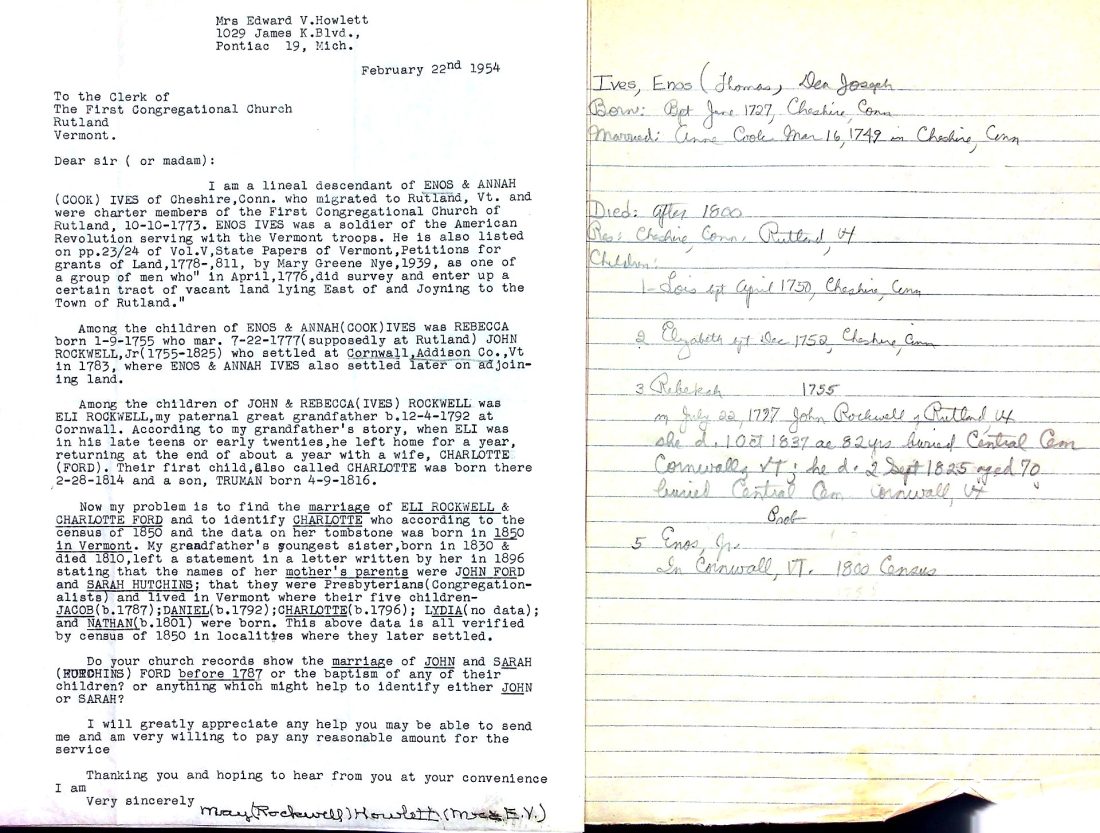 Mrs Edward V.Howlett
1029 James K.Blvd.,
Pontiac 19, Mich.
February 22nd 1954
To the Clerk of
The First Congregational Church
Rutland
Vermont.
Dear sir ( or madam):
I am a lineal descendant of ENOS & ANNAH
(COOK) IVES of Cheshire,Conn. who migrated to Rutland, Vt. and
were charter members of the First Congregational Church of
Rutland, 10-10-1773. ENOS IVES was a soldier of the American
Revolution serving with the Vermont troops. He is also listed
on pp.23/24 of Vol.V,State Papers of Vermont,Petitions for
grants of Land,1778-,811, by Mary Greene Nye,1939, as one of
a group of men who" in April,1776,did survey and enter up a
certain tract of vacant land lying East of and Joyning to the
Town of Rutland."
Among the children of ENOS & ANNAH(COOK)IVES was REBECCA
born 1-9-1755 who mar. 7-22-1777(supposedly at Rutland) JOHN
ROCKWELL,Jr(1755-1825) who settled at Cornwall,Addison Co.,Vt
in 1783, where ENOS & ANNAH IVES also settled later on adjoin-
ing land.
Among the children of JOHN & REBECCA(IVES) ROCKWELL was
ELI ROCKWELL,my paternal great grandfather b.12-4-1792 at
Cornwall. According to my grandfather's story, when ELI was
in his late teens or early twenties,he left home for a year,
returning at the end of about a year with a wife, CHARLOTTE
(FORD). Their first child,also called CHARLOTTE was born there
2-28-1814 and a son, TRUMAN born 4-9-1816.
Now my problem is to find the marriage of ELI ROCKWELL &
CHARLOTTE FORD and to identify CHARLOTTE who according to the
census of 1850 and the data on her tombstone was born in 1850
in Vermont. My grandfather's youngest sister,born in 1830 &
died 1810,left a statement in a letter written by her in 1896
stating that the names of her mother's parents were JOHN FORD
and SARAH HUTCHINS; that they were Presbyterians(Congregation-
alists) and lived in Vermont where their five children-
JACOB(b.1787);DANIEL(b.1792);CHARLOTTE(b.1796); LYDIA(no data);
and NATHAN(b.1801) were born. This above data is all verified
by census of 1850 in localities where they later settled.
Do your church records show the marriage of JOHN and SARAH
(HUTCHINS) FORD before 1787 or the baptism of any of their
children? or anything which might help to identify either JOHN
or SARAH?
I will greatly appreciate any help you may be able to send
me and am very willing to pay any reasonable amount for the
service
Thanking you and hoping to hear from you at your convenience
I am
Very sincerely
May(Rockwell)Howlett(Mrs E.V.)
Ives, Enos (Thomas, Dea Joseph
Born: Bpt June 1727, Cheshire, Conn
Married: Anne Cook Mar 16, 1749 in Cheshire, Conn
Died: after 1800
Res: Cheshire, Conn. Rutland, Vt
Children:
1- Lois bpt April 1750, Cheshire, Conn
2 Elizabeth bpt Dec 1752, Cheshire, Conn
3 Rebekah 1755
m July 22, 1797 John Rockwell of Rutland, Vt
she d. 1 Oct 1837 ae 82 yrs buried Central Cem
Cornwall, VT; he d. 2 Sept 1825 aged 70
buried Central Cem Cornwall, Vt
Prob
5 Enos, Jr.
In Cornwall, VT. 1800 Census